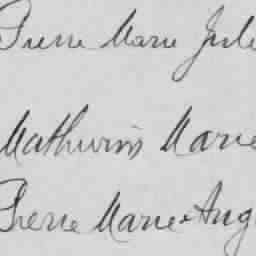 Pierre Marie Jule
Mathurin Marie
Pierre Marie Ang